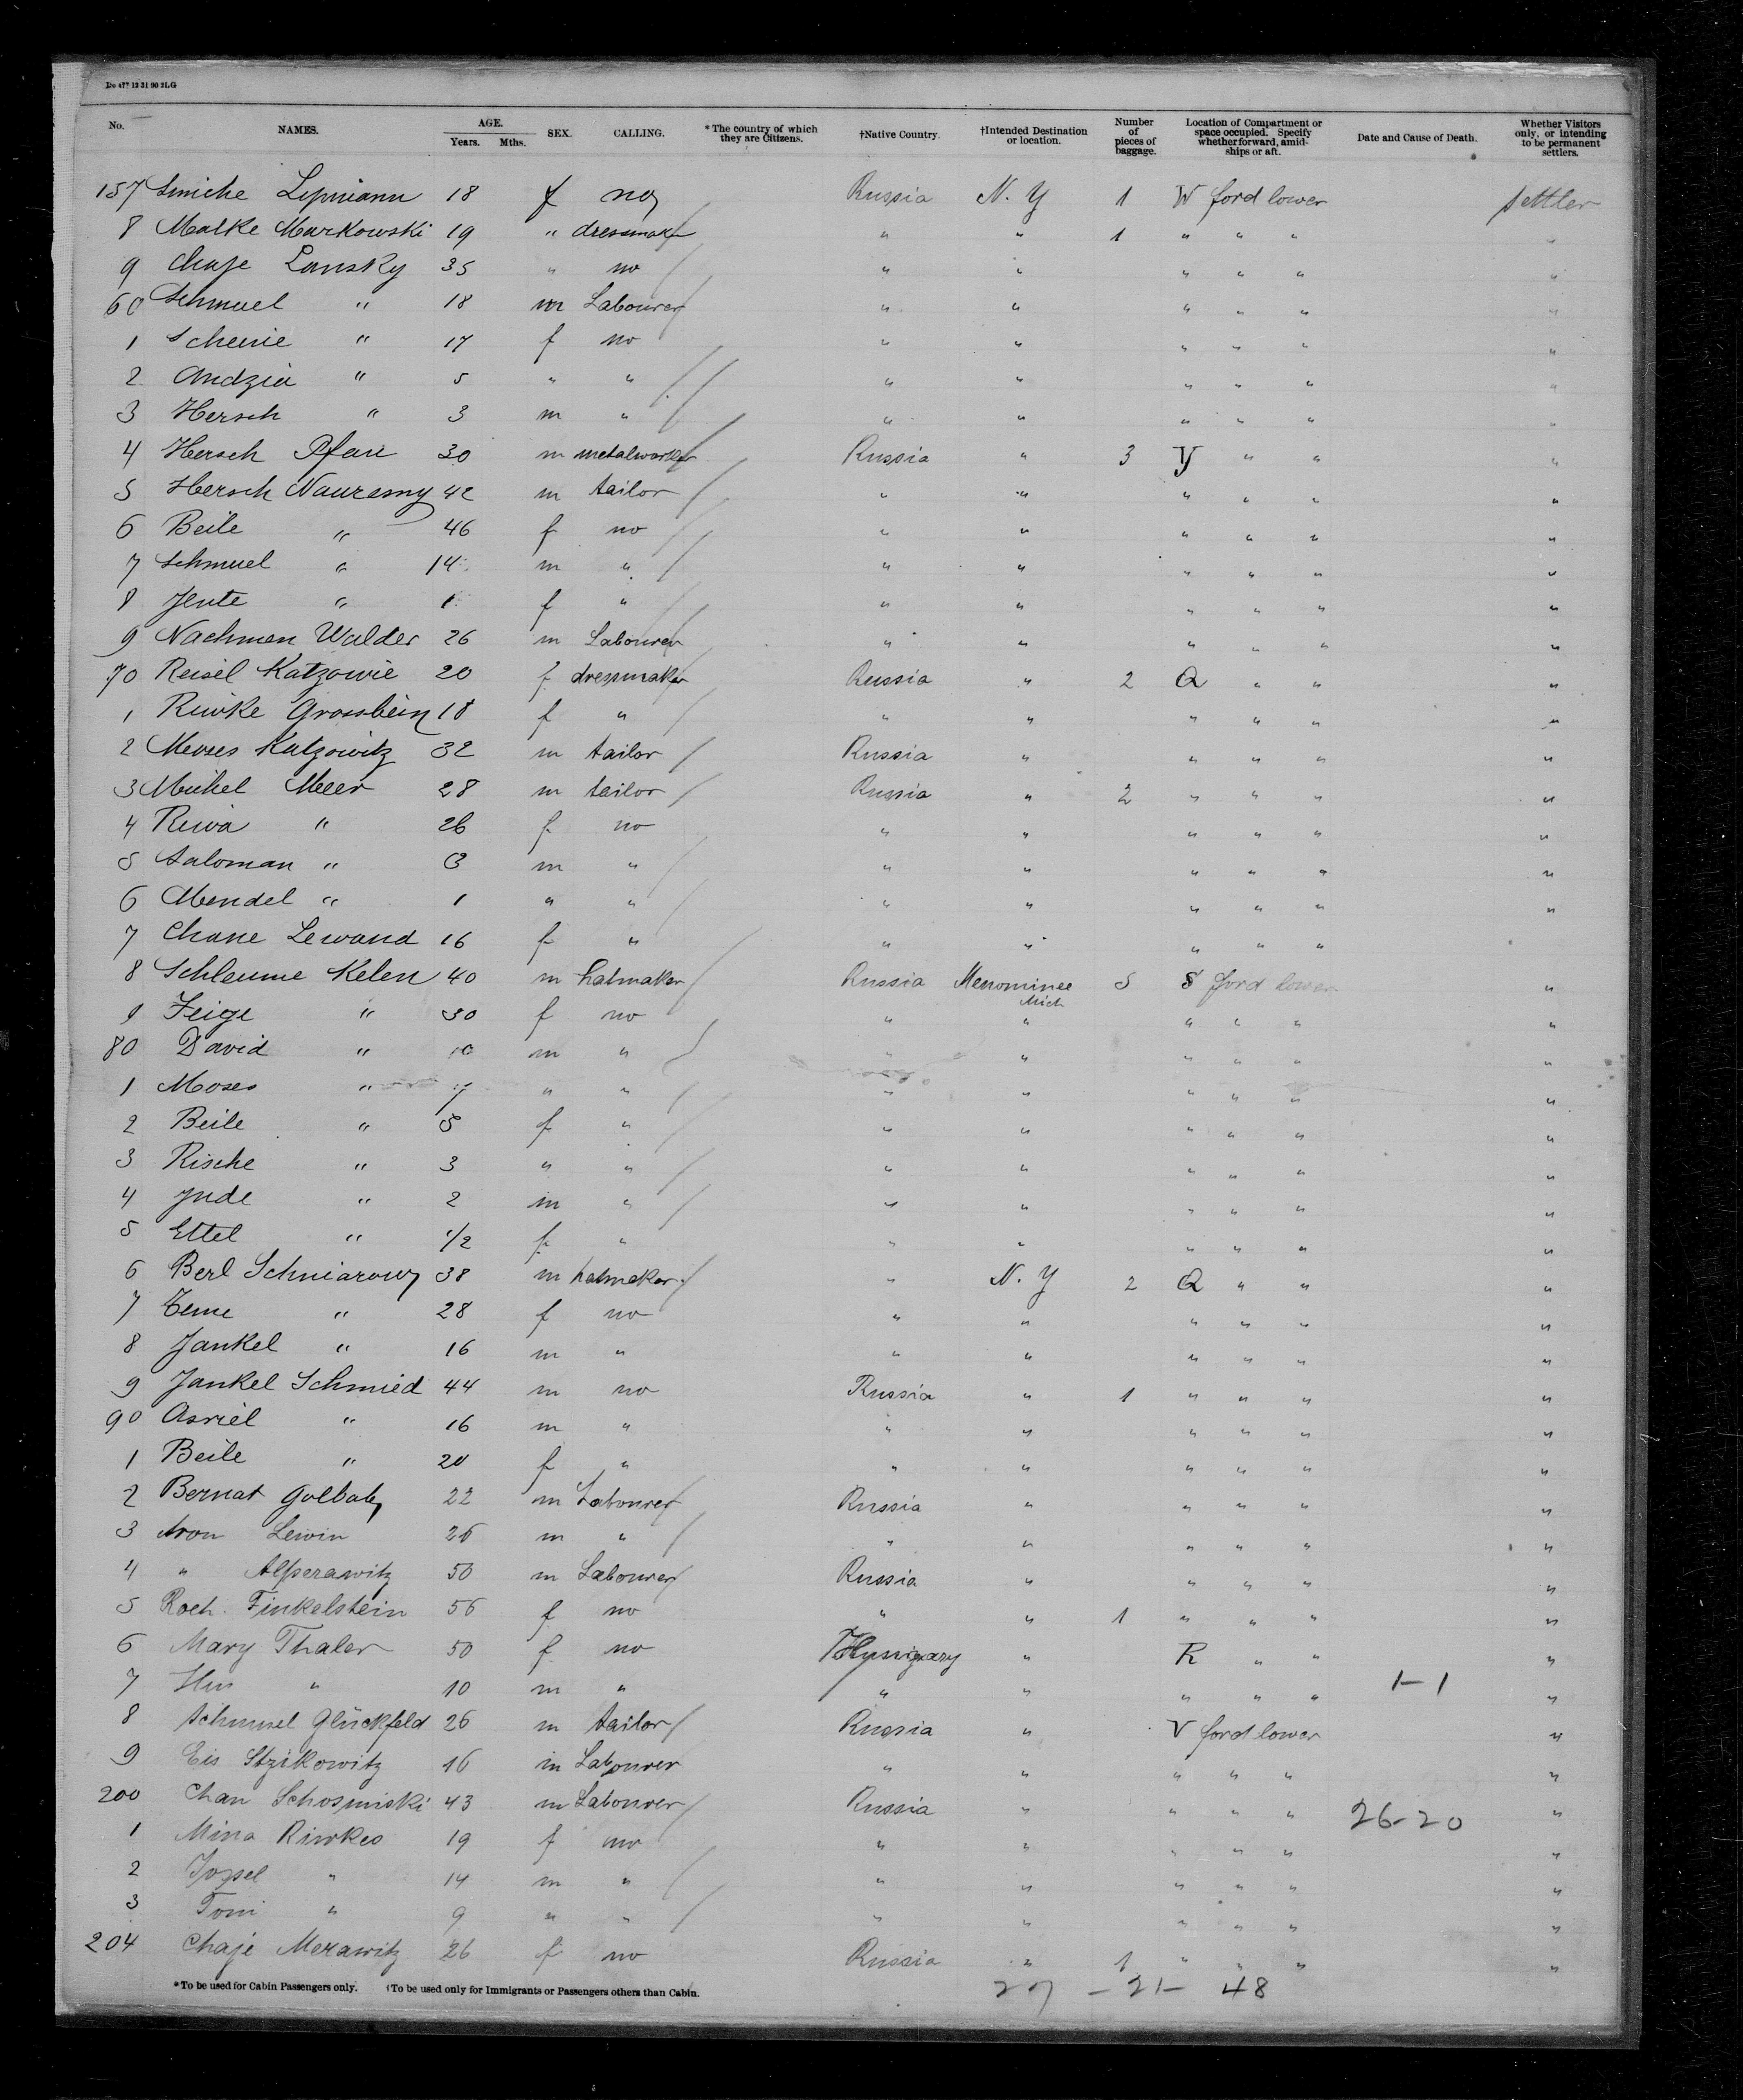 Do 477 12 31 90 2LG
No. NAMES. AGE. Years. Mths. SEX. CALLING. *The country of which they are Citizens. †Native Country. †Intended Destination or location. Number of pieces of baggage. Location of Compartment or space occupied. Specify whether forward, amidships or aft. Date and Cause of Death. Whether Visitors only, or intending to be permanent settlers.
157 Smiche Lipmann 18 f no Russia N. Y 1 W ford lower settler
8 Malke Markowski 19 " dressmaker " " 1 " " " "
9 Chaje Lansky 35 " no " " " " " "
60 Schmuel " 18 m Labourer " " " " " "
1 Scheine " 17 f no " " " " " "
2 Andzia " 5 " " " " " " " "
3 Hersch " 3 m " " " " " " "
4 Hersch Pfau 30 m metalworker Russia " 3 " " "
5 Hersch Nauresny 42 m tailor " " " " " "
6 Beile " 46 f no " " " " " "
7 Schmuel " 14 m " " " " " " "
8 Jente " 1 f " " " " " " "
9 Nachmen Walder 26 m Labourer " " " " " "
70 Reisel Katzowie 20 f dressmaker Russia " 2 Q " " "
1 Riwke Grossbein 18 f " " " " " " "
2 Moses Katzowitz 32 m tailor Russia " " " " "
3 Michel Meer 28 m tailor Russia " 2 " " " "
4 Riwa " 26 f no " " " " " "
5 Saloman " 3 m " " " " " " "
6 Mendel " 1 " " " " " " " "
7 Chane Lewand 16 f " " " " " "
8 Schleume Kelen 40 m hatmaker Russia Menominee Mich 5 S ford lower "
9 Feige " 30 f no " " " " " "
80 David " 10 m " " " " " " "
1 Moses " 7 " " " " " " " "
2 Beile " 5 f " " " " " " "
3 Rische " 3 " " " " " " " "
4 Jude " 2 m " " " " " " "
5 Ettel " 1/2 f " " " " " " "
6 Berl Schniarowy 38 m hatmaker " N. Y 2 Q " " "
7 Teme " 28 f no " " " " " "
8 Jankel " 16 m " " " " " " "
9 Jankel Schmied 44 m no Russia " 1 " " " "
90 Asriel " 16 m " " " " " " "
1 Beile " 20 f " " " " " " "
2 Bernat 22 m Labourer Russia " " " " "
3 Aron Lewin 26 m " " " " " " "
4 " Alperawitz 50 m Labourer Russia " " " " "
5 Roch. Finkelstein 56 f no " " 1 " " " "
6 Mary Thaler 50 f no Hungary " R " " "
7 " 10 m " " " " " " 1-1 "
8 Schmuel Glückfeld 26 m tailor Russia " V ford lower "
9 Eis Stzikowitz 16 m Labourer " " " " " "
200 Chan Schosminski 43 m Labourer Russia " " " " 26-20 "
1 Mina Riwkes 19 f no " " " " " "
2 Jossel " 14 m " " " " " " "
3 Toni " 9 " " " " " " " "
204 Chaje Merawitz 26 f no Russia " 1 " " " "
*To be used for Cabin Passengers only. †To be used only for Immigrants or Passengers others than Cabin.
27 - 21 - 48